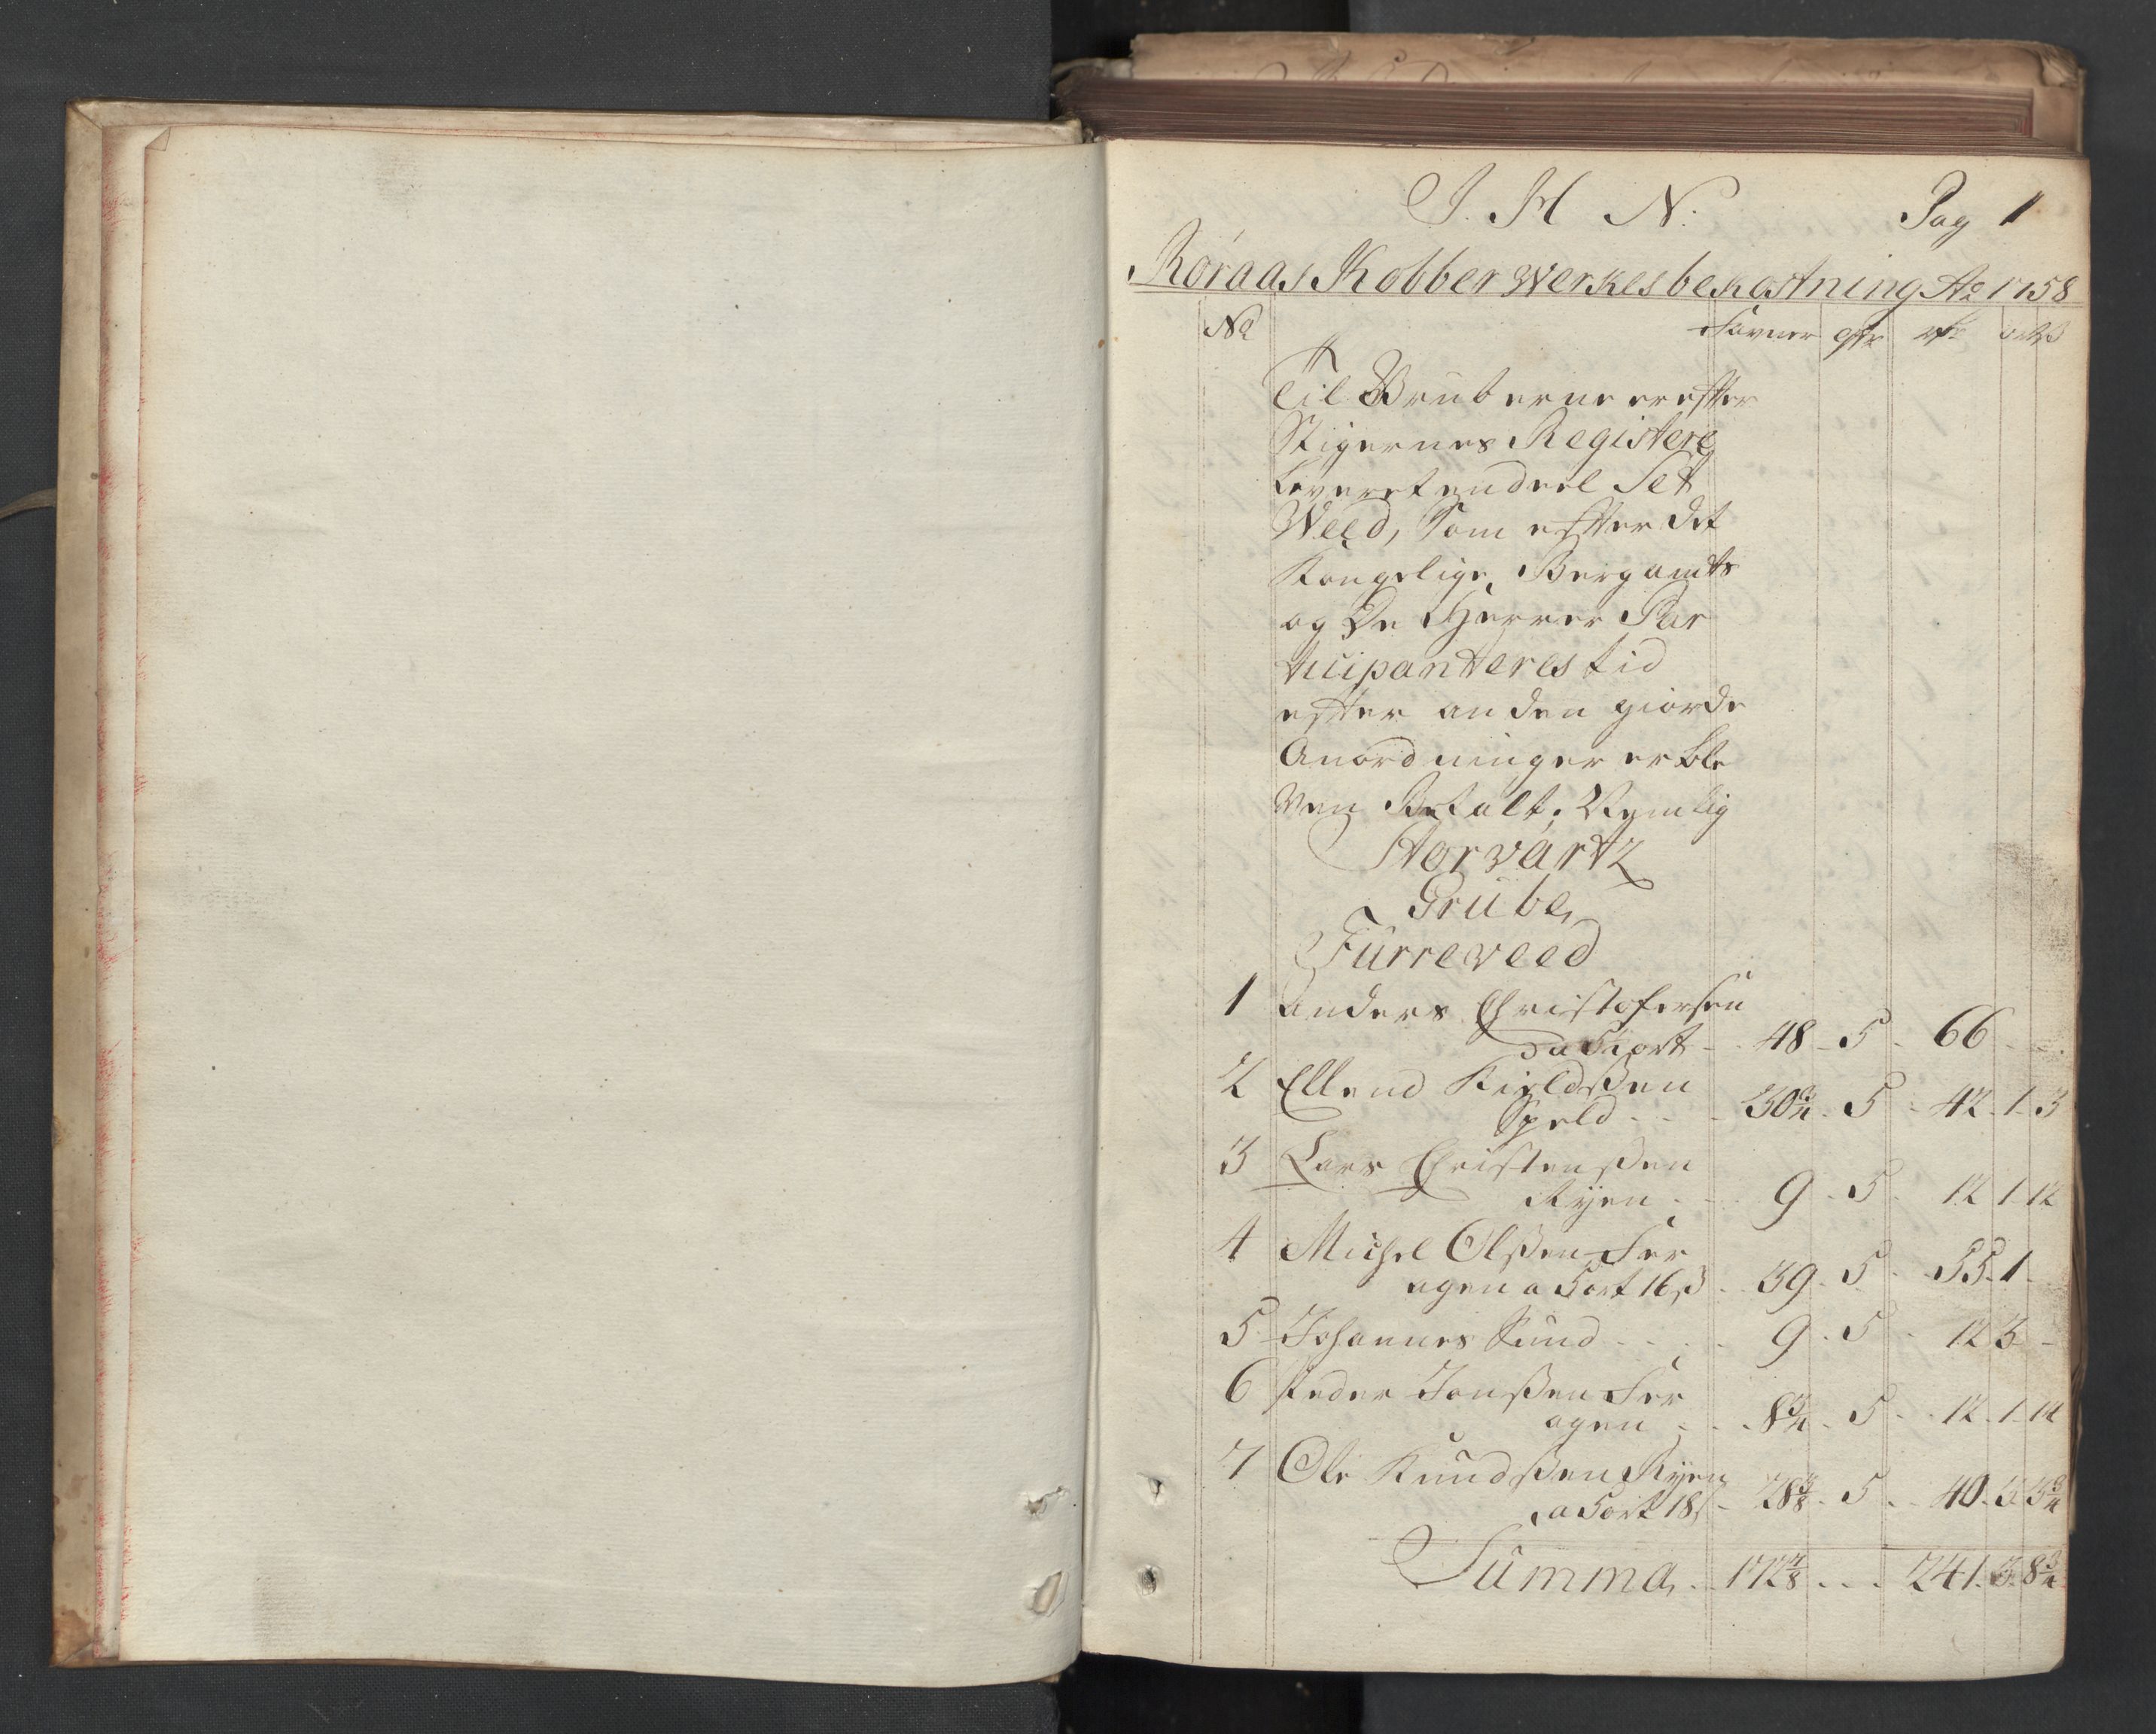 J. H N. Pag 1
Röraas Kobber Werkes bekostning Ao 1758
No Favner qtr rdr ort ß
Til Gruberne er efter
Stigernes Registere
Leveret endeel Set
Weed, Som efter det
Kongelige Bergamts
og De Herrer Par
ticipanteres tid
efter anden giorde
Anordninger er ble
ven Betalt; Nemlig
Storvartz
Grube
Furreveed
1 Anders Christofersen
a 5 ort 48 5 66
2 Ellend Kieldssen
Speld 30 3/4 5 42 1 3
3 Lars Christenssen
Ryen 9 5 12 1 12
4 Michel Olssen Fer
agen a 5 ort 16 ß 39 5 55 1
5 Johannes Sund 9 5 12 3
6 Peder Jonssen Fer
agen 8 3/4 5 12 1
7 Ole Knudssen Ryen
a 5 ort 18 28 3/8 5 40 3 3/4
Summa 172 7/8 241 3 8 3/4